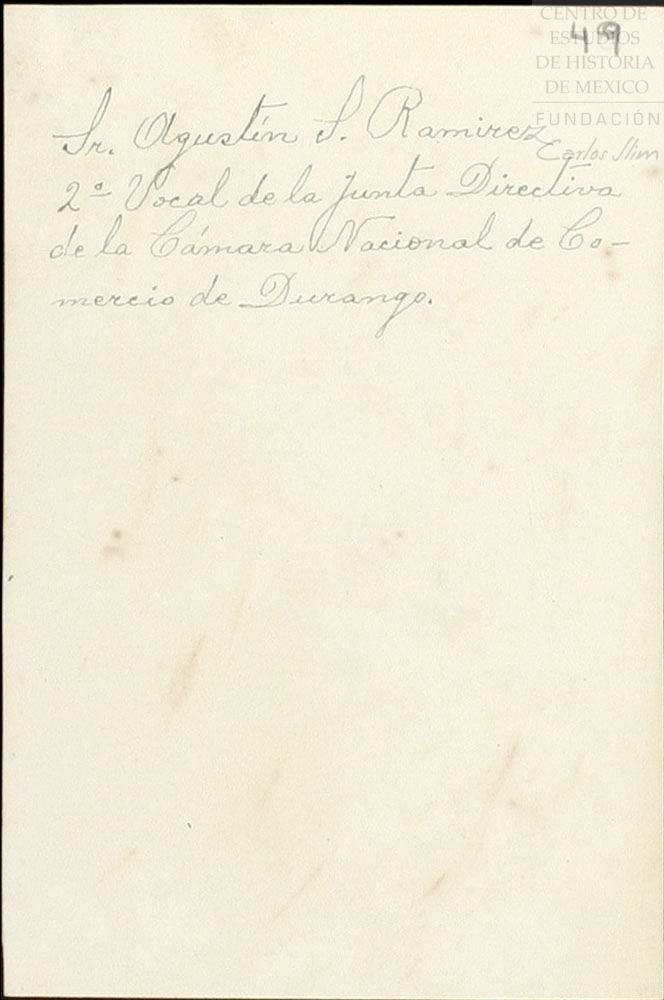 CENTRO DE
ESTUDIOS
DE HISTORIA
DE MEXICO
FUNDACIÓN
Carlos Slim
49
Sr. Agustín S. Ramirez
2º Vocal de la Junta Directiva
de la Cámara Nacional de Co-
mercio de Durango.